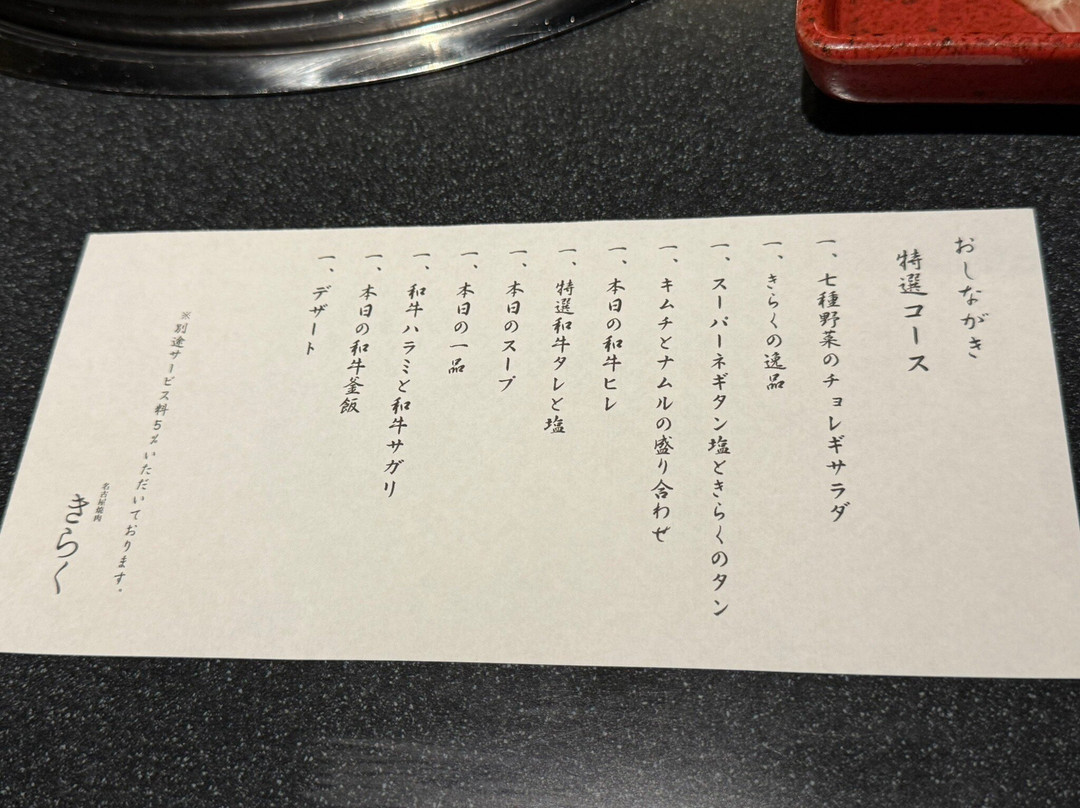 おしながき
特選コース
一、七種野菜のチョレギサラダ
一、きらくの逸品
一、スーパーネギタン塩ときらくのタン
一、キムチとナムルの盛り合わせ
一、本日の和牛ヒレ
一、特選和牛タレと塩
一、本日のスープ
一、本日の一品
一、和牛ハラミと和牛サガリ
一、本日の和牛釜飯
一、デザート
※別途サービス料5%いただいております。
名古屋焼肉
きらく